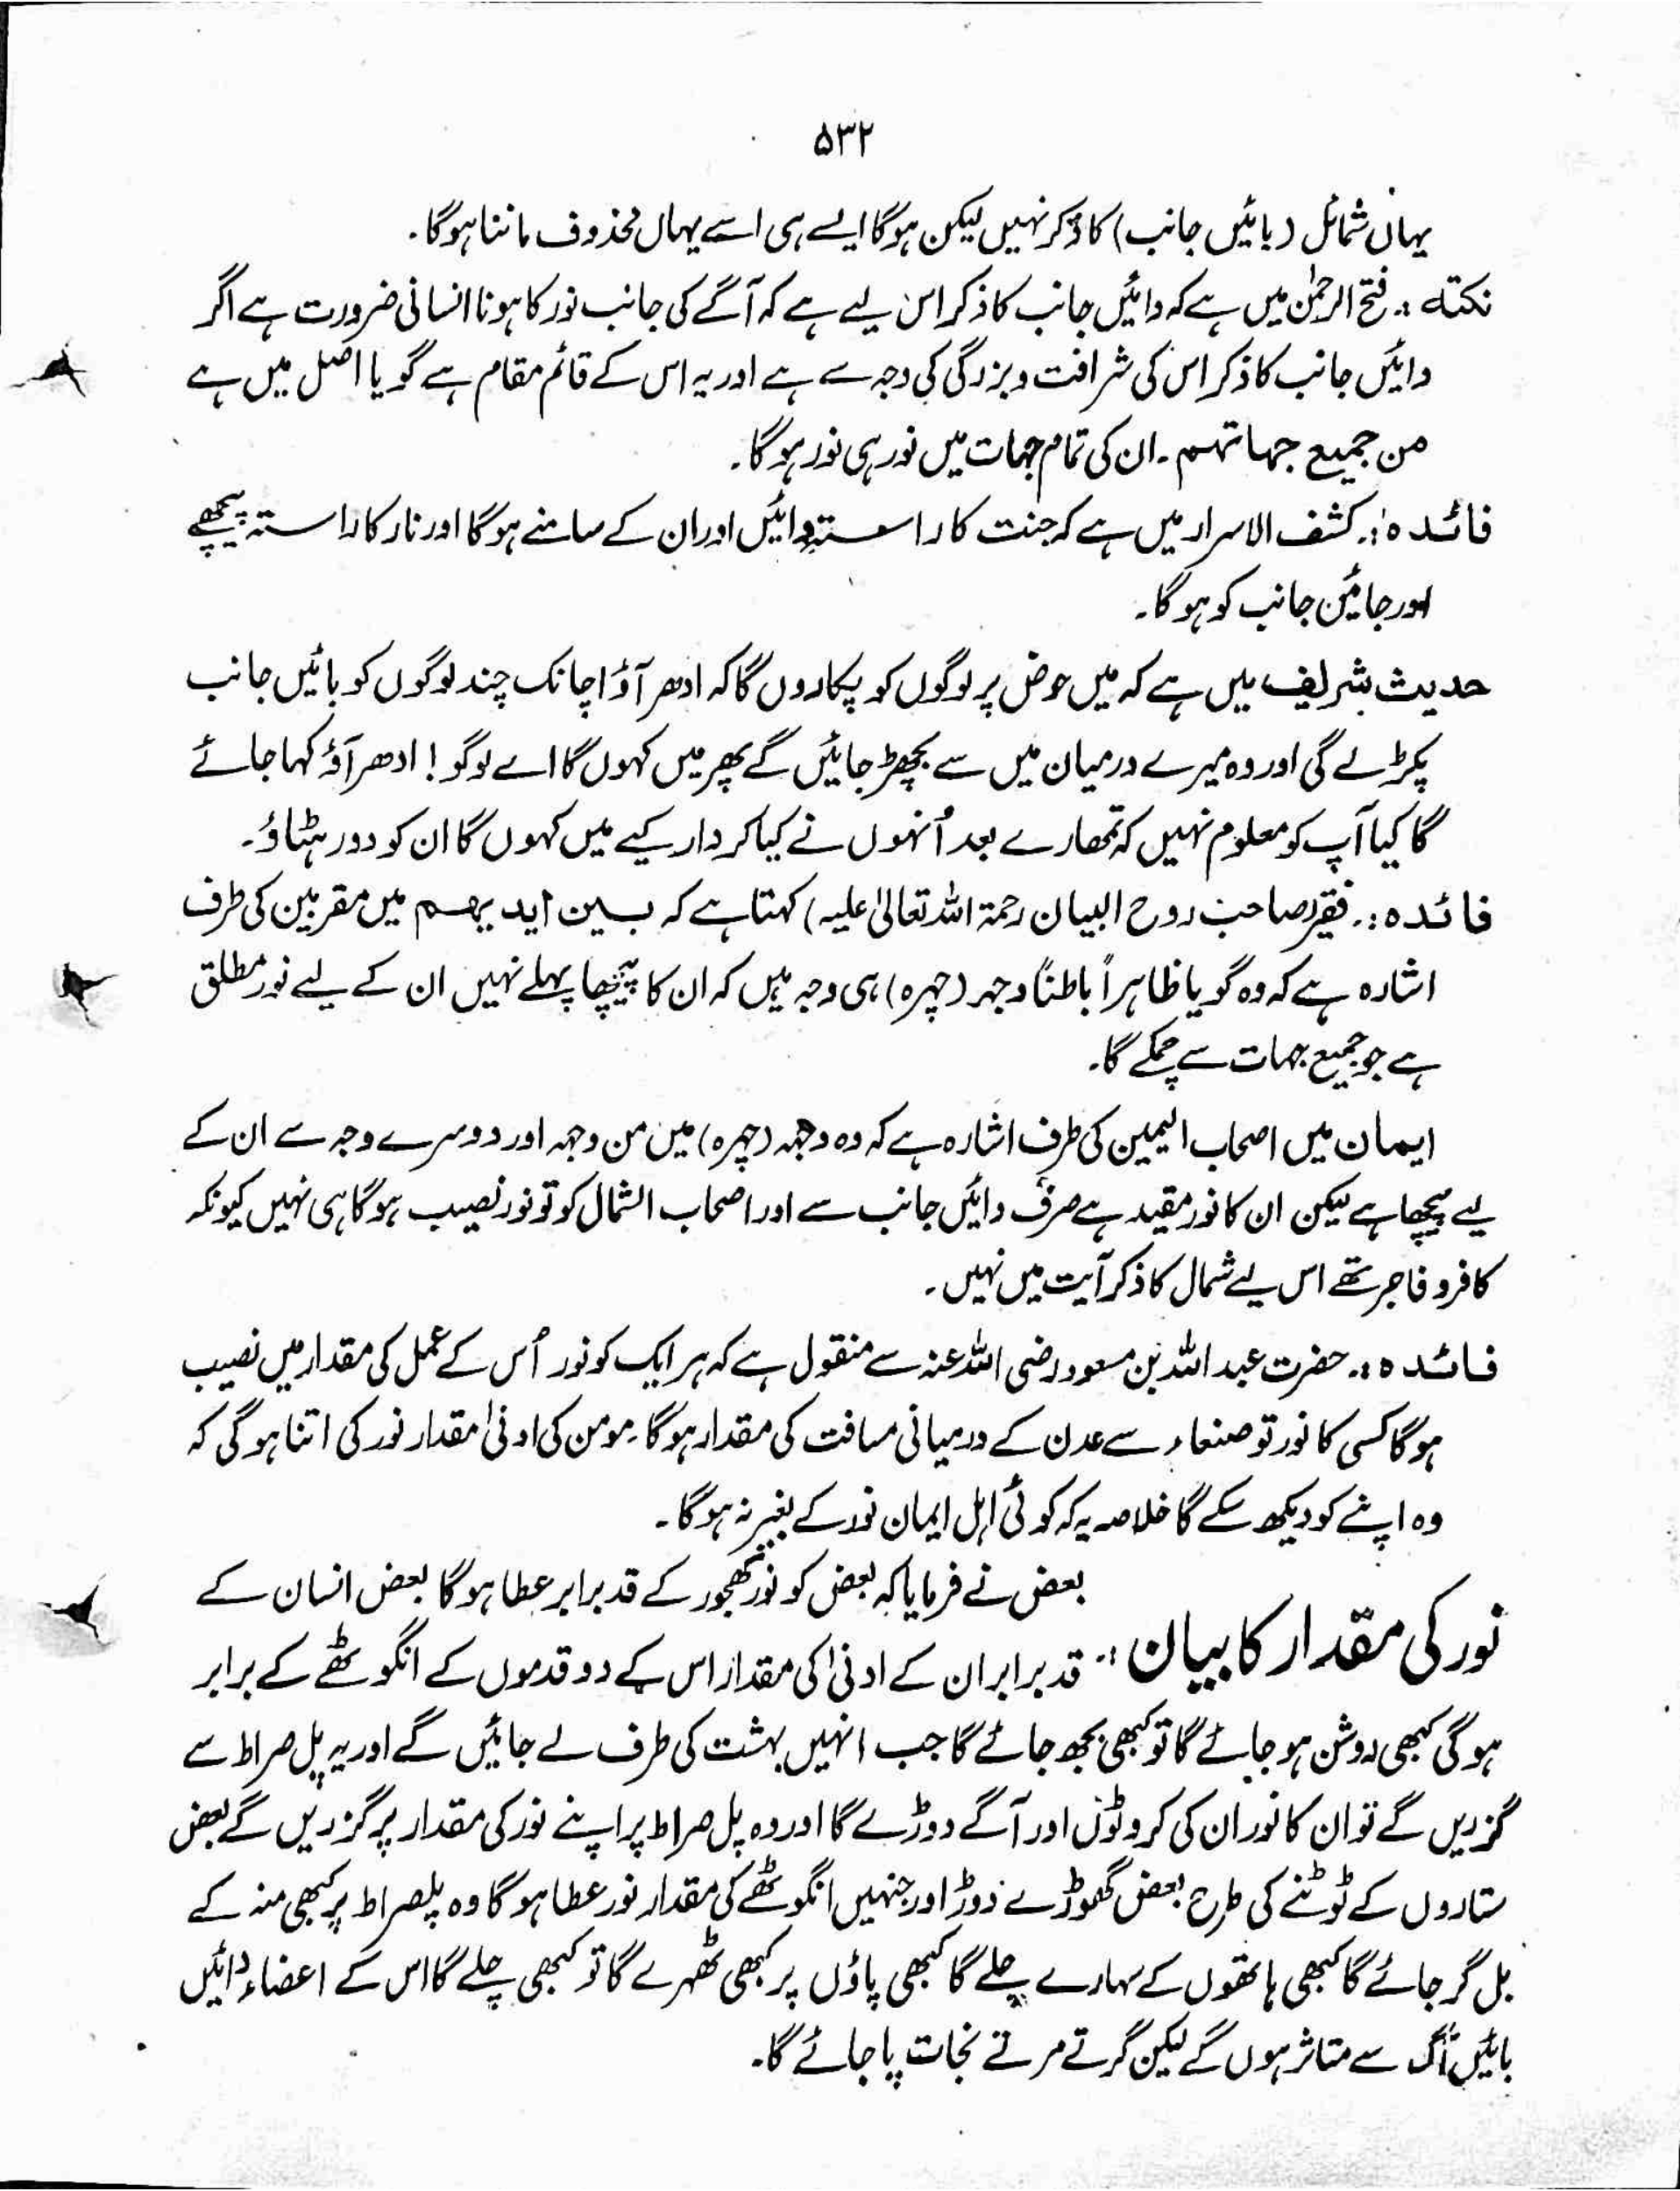 ۵۳۲
یہاں شمائل (بائیں جانب) کا ذکر نہیں لیکن ہوگا ایسے ہی اسے یہاں محذوف ماننا ہوگا۔
نکتہ :۔ فتح الرحمٰن میں ہے کہ دائیں جانب کا ذکر اس لیے ہے کہ آگے کی جانب نور کا ہونا انسانی ضرورت ہے اگر
دائیں جانب کا ذکر اس کی شرافت و بزرگی کی وجہ سے ہے اور یہ اس کے قائم مقام ہے گویا اصل میں ہے
من جمیع جہاتہم ۔ ان کی تمام جہات میں نور ہی نور ہوگا۔
فائدہ :۔ کشف الاسرار میں ہے کہ جنت کا راستہ دائیں اور ان کے سامنے ہوگا اور نار کا راستہ پیچھے
اور جائیں جانب کو ہوگا۔
حدیث شریف میں ہے کہ میں حوض پر لوگوں کو پکاروں گا کہ ادھر آؤ اچانک چند لوگوں کو بائیں جانب
پکڑ لے گی اور وہ میرے درمیان میں سے بچھڑ جائیں گے پھر میں کہوں گا اے لوگو ! ادھر آؤ کہا جائے
گا کیا آپ کو معلوم نہیں کہ تمھارے بعد اُنہوں نے کیا کردار کیے میں کہوں گا ان کو دور ہٹاؤ۔
فائدہ :۔ فقیر (صاحب روح البیان رحمۃ اللہ تعالیٰ علیہ) کہتا ہے کہ بین ایدیہم میں مقربین کی طرف
اشارہ ہے کہ وہ گویا ظاہراً باطناً وجہر (چہرہ) ہی وجہ ہیں کہ ان کا پیچھا پہلے نہیں ان کے لیے نور مطلق
ہے جو جمیع جہات سے چمکے گا۔
ایمان میں اصحاب الیمین کی طرف اشارہ ہے کہ وہ وجہہ (چہرہ) میں من وجہہ اور دوسرے وجہ سے ان کے
لیے پیچھا ہے لیکن ان کا نور مقید ہے صرف دائیں جانب سے اور اصحاب الشمال کو تو نور نصیب ہوگا ہی نہیں کیونکہ
کافر و فاجر تھے اس لیے شمال کا ذکر آیت میں نہیں ۔
فائدہ :۔ حضرت عبد اللہ بن مسعود رضی اللہ عنہ سے منقول ہے کہ ہر ایک کو نور اُس کے عمل کی مقدار میں نصیب
ہوگا کسی کا نور تو صنعاء سے عدن کے درمیانی مسافت کی مقدار ہوگا ۔ مومن کی ادنیٰ مقدار نور کی اتنا ہوگی کہ
وہ اپنے کو دیکھ سکے گا خلاصہ یہ کہ کوئی اہل ایمان نور کے بغیر نہ ہوگا ۔
بعض نے فرمایا کہ بعض کو نور کھجور کے قد برابر عطا ہوگا بعض انسان کے
نور کی مقدار کا بیان :۔ قد برابر ان کے ادنیٰ کی مقدار اس کے دو قدموں کے انگوٹھے کے برابر
ہوگی کبھی روشن ہو جائے گا تو کبھی بجھ جائے گا جب انہیں بہشت کی طرف لے جائیں گے اور یہ پل صراط سے
گزریں گے تو ان کا نور ان کی کروٹوں اور آگے دوڑے گا اور وہ پل صراط پر اپنے نور کی مقدار پر گزریں گے بعض
ستاروں کے ٹوٹنے کی طرح بعض گھوڑے دوڑ اور جنہیں انگوٹھے کی مقدار نور عطا ہوگا وہ پلصراط پر کبھی منہ کے
بل گر جائے گا کبھی ہاتھوں کے سہارے چلے گا کبھی پاؤں پر کبھی ٹھہرے گا تو کبھی چلے گا اس کے اعضاء دائیں
بائیں آگ سے متاثر ہوں گے لیکن گرتے مرتے نجات پا جائے گا۔